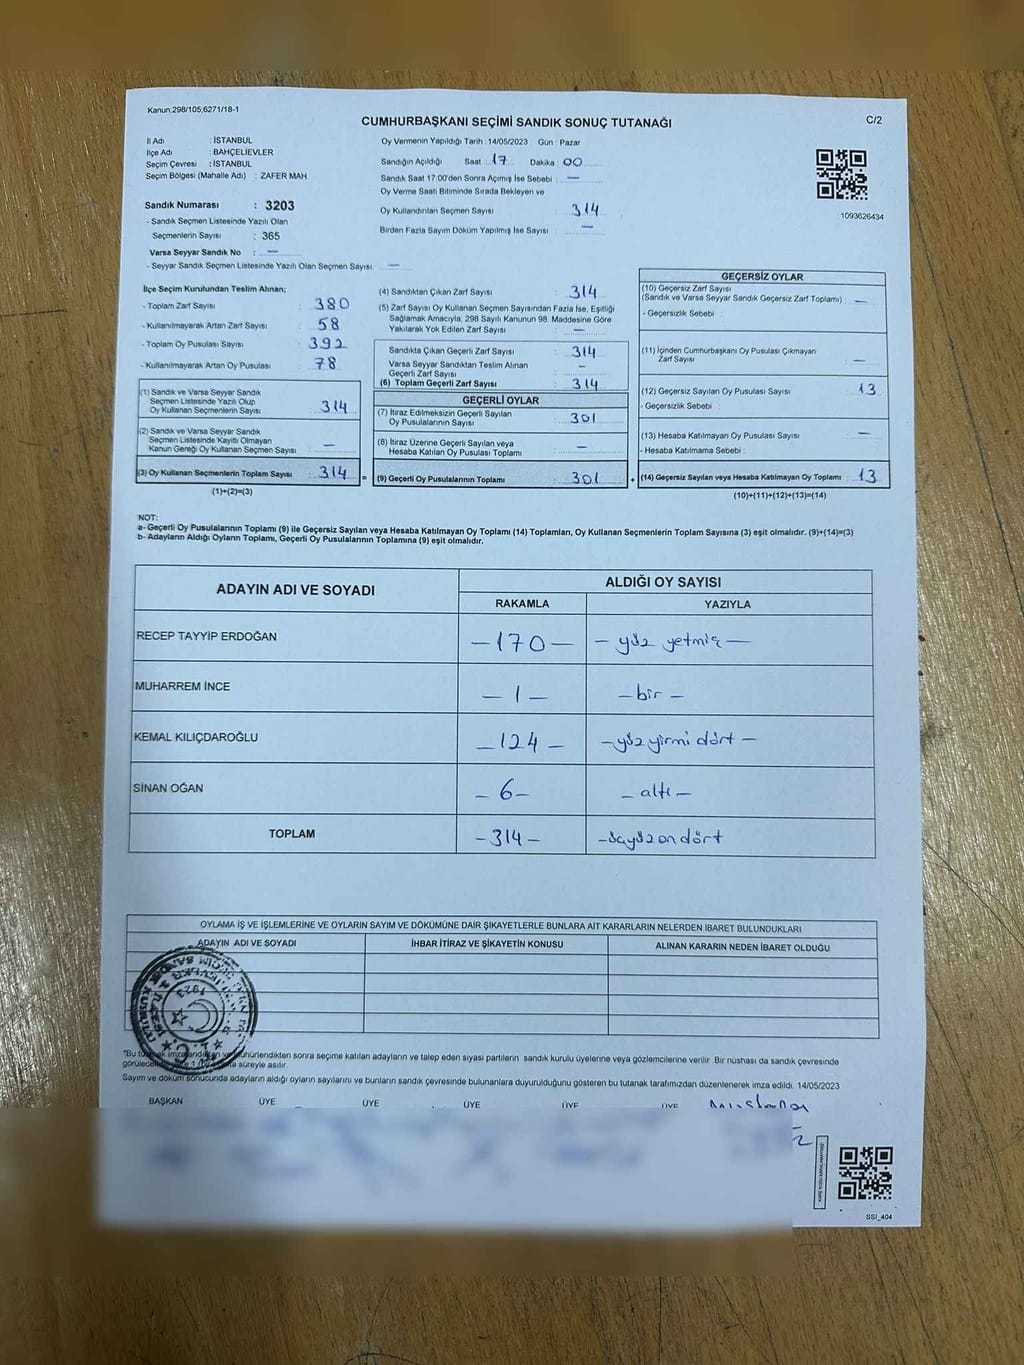 Kanun:298/105,6271/18-1
CUMHURBAŞKANI SEÇİMİ SANDIK SONUÇ TUTANAĞI
C/2
İl Adı : İSTANBUL
İlçe Adı : BAHÇELİEVLER
Seçim Çevresi : İSTANBUL
Seçim Bölgesi (Mahalle Adı) : ZAFER MAH
Oy Vermenin Yapıldığı Tarih :14/05/2023 Gün : Pazar
Sandığın Açıldığı Saat : 17 Dakika : 00
Sandık Saat 17:00'den Sonra Açımış İse Sebebi : —
Oy Verme Saati Bitiminde Sırada Bekleyen ve
Oy Kullandırılan Seçmen Sayısı : 314
Birden Fazla Sayım Döküm Yapılmış İse Sayısı : —
1093626434
Sandık Numarası : 3203
- Sandık Seçmen Listesinde Yazılı Olan
Seçmenlerin Sayısı : 365
Varsa Seyyar Sandık No : —
- Seyyar Sandık Seçmen Listesinde Yazılı Olan Seçmen Sayısı : —
İlçe Seçim Kurulundan Teslim Alınan;
- Toplam Zarf Sayısı : 380
- Kullanılmayarak Artan Zarf Sayısı : 58
- Toplam Oy Pusulası Sayısı : 392
- Kullanılmayarak Artan Oy Pusulası : 78
(1) Sandık ve Varsa Seyyar Sandık
Seçmen Listesinde Yazılı Olup
Oy Kullanan Seçmenlerin Sayısı : 314
(2) Sandık ve Varsa Seyyar Sandık
Seçmen Listesinde Kayıtlı Olmayan
Kanun Gereği Oy Kullanan Seçmen Sayısı : —
(3) Oy Kullanan Seçmenlerin Toplam Sayısı : 314
(1)+(2)=(3)
(4) Sandıktan Çıkan Zarf Sayısı : 314
(5) Zarf Sayısı Oy Kullanan Seçmen Sayısından Fazla İse, Eşitliği
Sağlamak Amacıyla, 298 Sayılı Kanunun 98. Maddesine Göre
Yakılarak Yok Edilen Zarf Sayısı : —
Sandıkta Çıkan Geçerli Zarf Sayısı : 314
Varsa Seyyar Sandıktan Teslim Alınan
Geçerli Zarf Sayısı : —
(6) Toplam Geçerli Zarf Sayısı : 314
GEÇERLİ OYLAR
(7) İtiraz Edilmeksizin Geçerli Sayılan
Oy Pusulalarının Sayısı : 301
(8) İtiraz Üzerine Geçerli Sayılan veya
Hesaba Katılan Oy Pusulası Toplamı : —
= (9) Geçerli Oy Pusulalarının Toplamı : 301
GEÇERSİZ OYLAR
(10) Geçersiz Zarf Sayısı
(Sandık ve Varsa Seyyar Sandık Geçersiz Zarf Toplamı) : —
- Geçersizlik Sebebi :
(11) İçinden Cumhurbaşkanı Oy Pusulası Çıkmayan
Zarf Sayısı : —
(12) Geçersiz Sayılan Oy Pusulası Sayısı : 13
- Geçersizlik Sebebi :
(13) Hesaba Katılmayan Oy Pusulası Sayısı : —
- Hesaba Katılmama Sebebi :
+ (14) Geçersiz Sayılan veya Hesaba Katılmayan Oy Toplamı : 13
(10)+(11)+(12)+(13)=(14)
NOT:
a- Geçerli Oy Pusulalarının Toplamı (9) ile Geçersiz Sayılan veya Hesaba Katılmayan Oy Toplamı (14) Toplamları, Oy Kullanan Seçmenlerin Toplam Sayısına (3) eşit olmalıdır. (9)+(14)=(3)
b- Adayların Aldığı Oyların Toplamı, Geçerli Oy Pusulalarının Toplamına (9) eşit olmalıdır.
ADAYIN ADI VE SOYADI
ALDIĞI OY SAYISI
RAKAMLA YAZIYLA
RECEP TAYYİP ERDOĞAN —170— — yüz yetmiş —
MUHARREM İNCE — 1 — — bir —
KEMAL KILIÇDAROĞLU — 124 — — yüz yirmi dört —
SİNAN OĞAN — 6 — — altı —
TOPLAM — 314 — — üçyüzondört
OYLAMA İŞ VE İŞLEMLERİNE VE OYLARIN SAYIM VE DÖKÜMÜNE DAİR ŞİKAYETLERLE BUNLARA AİT KARARLARIN NELERDEN İBARET BULUNDUKLARI
ADAYIN ADI VE SOYADI
İHBAR İTİRAZ VE ŞİKAYETİN KONUSU
ALINAN KARARIN NEDEN İBARET OLDUĞU
1923
T.C.
"Bu imzalandıktan ve mühürlendikten sonra seçime katılan adayların ve talep eden siyasi partilerin sandık kurulu üyelerine veya gözlemcilerine verilir. Bir nüshası da sandık çevresinde
süreyle asılır.
Sayım ve döküm sonucunda adayların aldığı oyların sayılarını ve bunların sandık çevresinde bulunanlara duyurulduğunu gösteren bu tutanak tarafımızdan düzenlenerek imza edildi. 14/05/2023
BAŞKAN ÜYE ÜYE ÜYE ÜYE ÜYE
SSİ_404